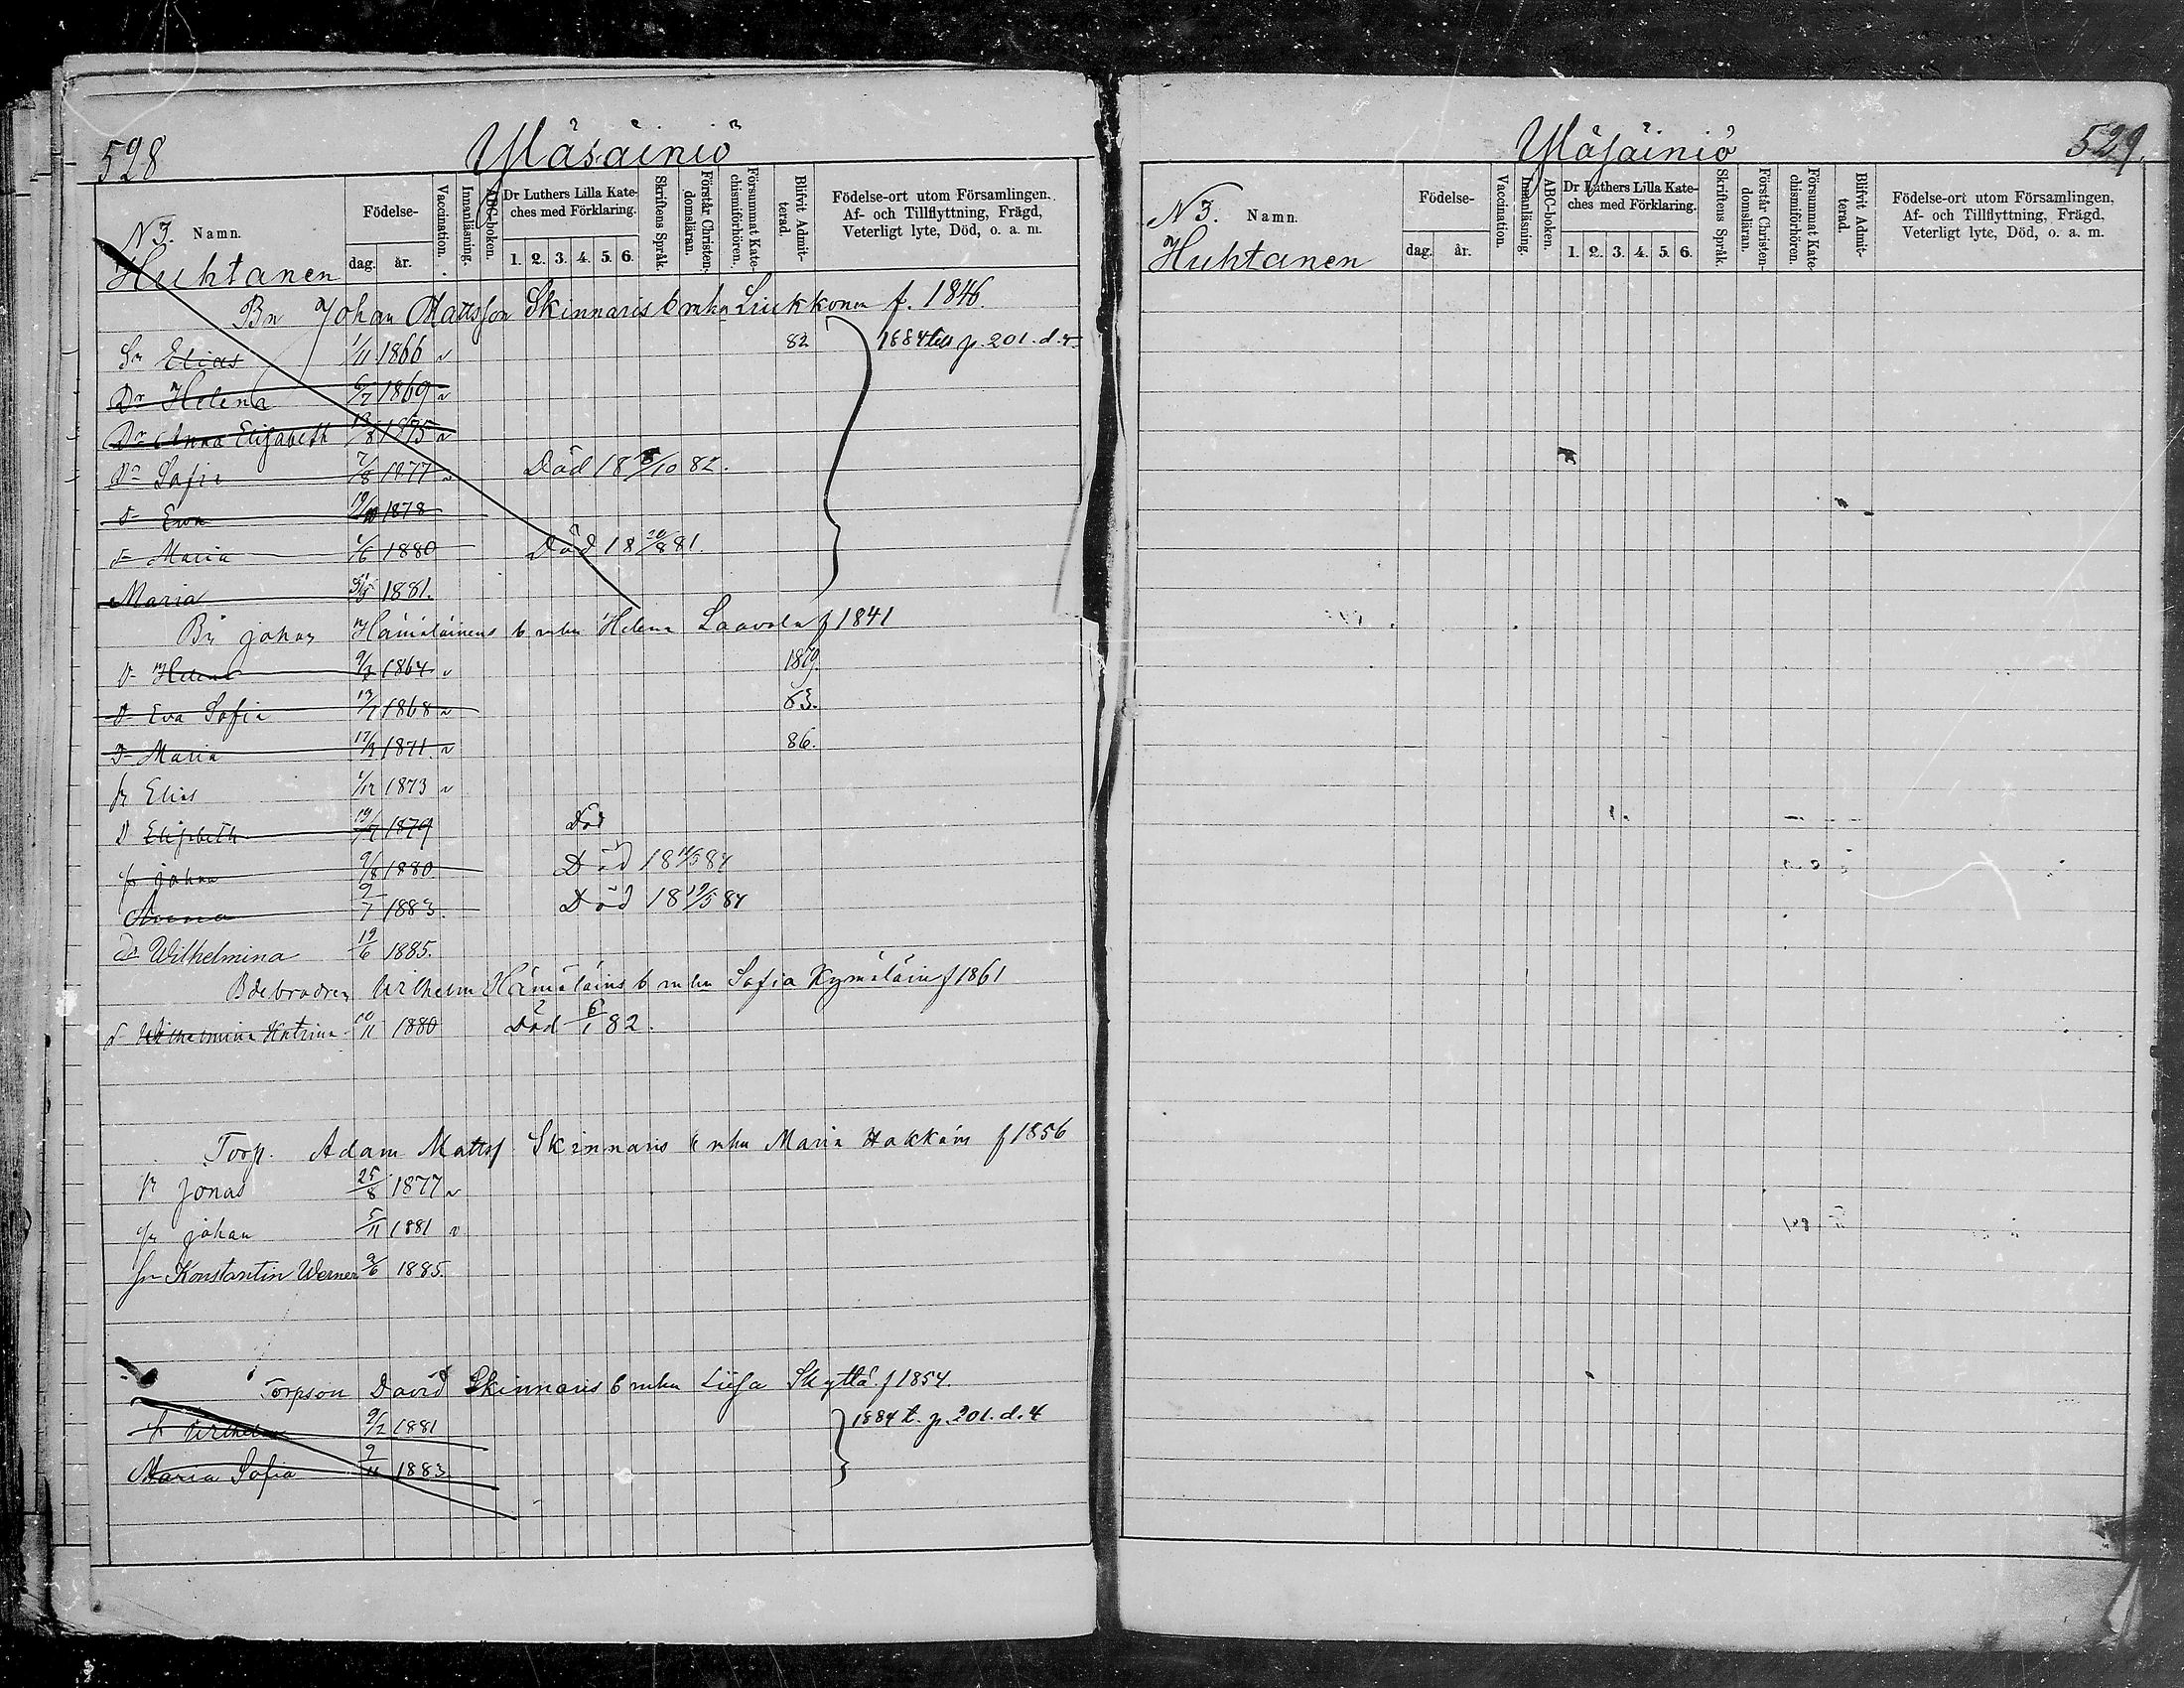 528 Yläsäiniö
N 3. Namn.
Huhtanen
Födelse-
dag. år.
Vaccination.
Innanläsning.
ABC-boken.
Dr Luthers Lilla Kateches med Förklaring.
1. 2. 3. 4. 5. 6.
Skriftens Språk.
Förstår Christendomsläran.
Försummat Katechismiförhören.
Blifvit Admitterad.
Födelse-ort utom Församlingen.
Af- och Tillflyttning, Frägd,
Veterligt lyte, Död, o. a. m.
Bn Johan Mattsson Skinnaris Liukkonen f. 1846.
Sn Elias 1/11 1866 v 82 1884 p. 201. d. 4
Dr Helena 6/7 1869 v
Dr Anna Elisabeth 1875 v
Dr Sofia 7/8 1877 v Död 18 /10 82.
Ewa 19/ 1878
Maria 1880 Död 18 20/8 81.
Maria 1881.
Bn johan Hämäläinens Helena Laavola f 1841
D Helena 1864 v 1879.
D Eva Sofia 1868 v 83.
D Maria 1871. v 86.
Elias 1/12 1873 v
D Elisabeth 19/ 1879 Död
johan 9/8 1880 Död 18 84
Anna 9/7 1883. Död 18 19/5 84
Dr Wilhelmina 19/6 1885.
Wilhelm Hämäläins Sofia Kymäläin f 1861
Wilhelmina Katrina 10/11 1880 Död 6/1 82.
Torp. Adam Matts Skinnaris Maria Hakkain f 1856
Jonas 25/8 1877 v
johan 5/11 1881 v
Sn Konstantin Werner 9/6 1885.
Torpson David Skinnaris Liisa Skyttä f 1854.
Wilhelm 9/2 1881 1884 t. p. 201. d. 4
Maria Sofia 9/11 1883.
Yläsäiniö 529.
N 3. Namn.
Huhtanen
Födelse-
dag. år.
Vaccination.
Innanläsning.
ABC-boken.
Dr Luthers Lilla Kateches med Förklaring.
1. 2. 3. 4. 5. 6.
Skriftens Språk.
Förstår Christendomsläran.
Försummat Katechismiförhören.
Blifvit Admitterad.
Födelse-ort utom Församlingen,
Af- och Tillflyttning, Frägd,
Veterligt lyte, Död, o. a. m.